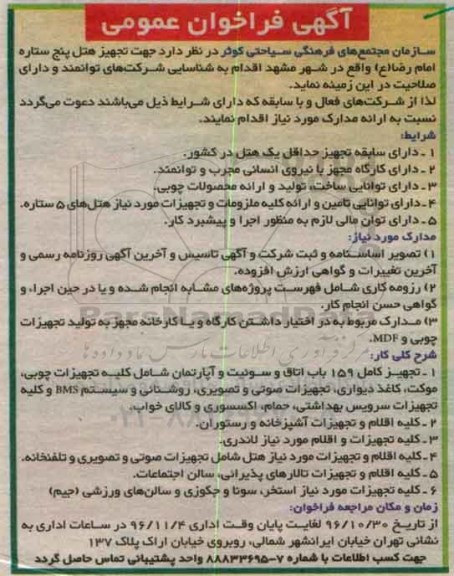 آگهی فراخوان عمومی
سازمان مجتمع‌های فرهنگی سیاحتی کوثر در نظر دارد جهت تجهیز هتل پنج ستاره
امام رضا(ع) واقع در شهر مشهد اقدام به شناسایی شرکت‌های توانمند و دارای
صلاحیت در این زمینه نماید.
لذا از شرکت‌های فعال و با سابقه که دارای شرایط ذیل می‌باشند دعوت می‌گردد
نسبت به ارائه مدارک مورد نیاز اقدام نمایند.
شرایط:
۱ ـ دارای سابقه تجهیز حداقل یک هتل در کشور.
۲ ـ دارای کارگاه مجهز با نیروی انسانی مجرب و توانمند.
۳ ـ دارای توانایی ساخت، تولید و ارائه محصولات چوبی.
۴ ـ دارای توانایی تامین و ارائه کلیه ملزومات و تجهیزات مورد نیاز هتل‌های ۵ ستاره.
۵ ـ دارای توان مالی لازم به منظور اجرا و پیشبرد کار.
مدارک مورد نیاز:
۱) تصویر اساسنامه و ثبت شرکت و آگهی تاسیس و آخرین آگهی روزنامه رسمی و
آخرین تغییرات و گواهی ارزش افزوده.
۲) رزومه کاری شامل فهرست پروژه‌های مشابه انجام شده و یا در حین اجراء و
گواهی حسن انجام کار.
۳) مدارک مربوط به در اختیار داشتن کارگاه و یا کارخانه مجهز به تولید تجهیزات
چوبی و MDF.
شرح کلی کار:
۱ ـ تجهیز کامل ۱۵۹ باب اتاق و سوئیت و آپارتمان شامل کلیه تجهیزات چوبی،
موکت، کاغذ دیواری، تجهیزات صوتی و تصویری، روشنائی و سیستم BMS و کلیه
تجهیزات سرویس بهداشتی، حمام، اکسسوری و کالای خواب.
۲ ـ کلیه اقلام و تجهیزات آشپزخانه و رستوران.
۳ ـ کلیه تجهیزات و اقلام مورد نیاز لاندری.
۴ ـ کلیه اقلام و تجهیزات مورد نیاز هتل شامل تجهیزات صوتی و تصویری و تلفنخانه.
۵ ـ کلیه اقلام و تجهیزات تالارهای پذیرائی، سالن اجتماعات.
۶ ـ کلیه تجهیزات مورد نیاز استخر، سونا و جکوزی و سالن‌های ورزشی (جیم)
زمان و مکان مراجعه فراخوان:
از تاریخ ۹۶/۱۰/۳۰ لغایت پایان وقت اداری ۹۶/۱۱/۴ در ساعات اداری به
نشانی تهران خیابان ایرانشهر شمالی، روبروی خیابان اراک پلاک ۱۳۷
جهت کسب اطلاعات با شماره ۷-۸۸۸۳۳۶۹۵ واحد پشتیبانی تماس حاصل گردد